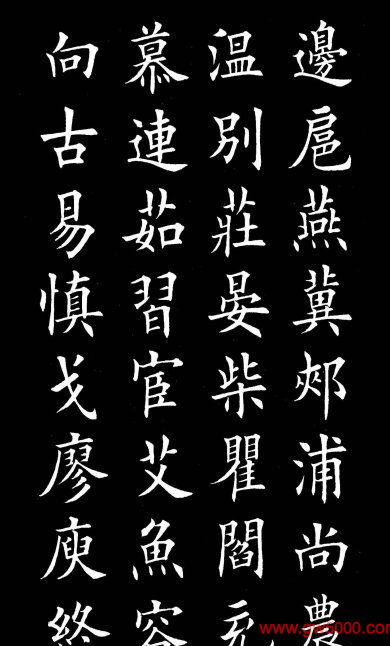 邊扈燕冀郟浦尚農
温別莊晏柴瞿閻充
慕連茹習宦艾魚容
向古易慎戈廖庾終
www.gw5000.com